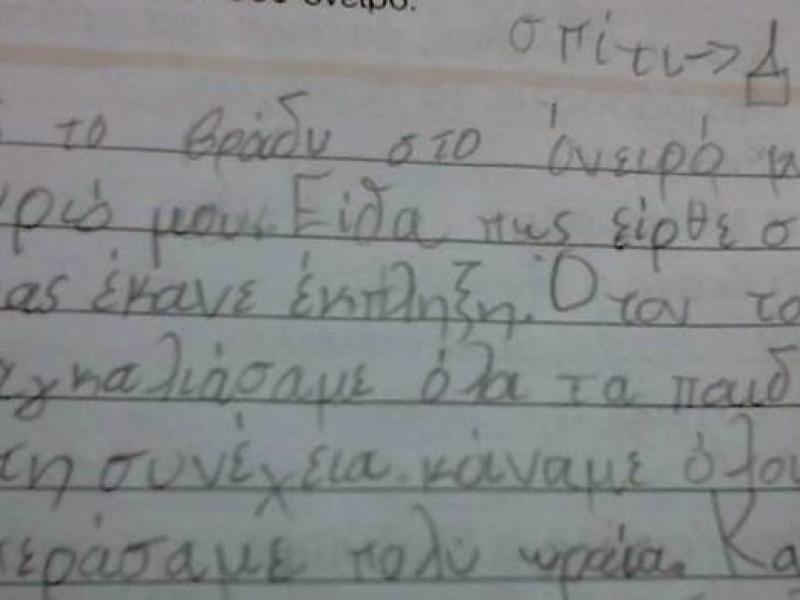 όνειρο.
σπίτι→Δ
το βράδυ στο όνειρό μ
ρώ μου. Είδα πως είρθε σ
ας έκανε έκπληξη. Όταν το
γκαλιάσαμε όλα τα παιδ
τη συνέχεια κάναμε όλοι
εράσαμε πολύ ωραία. Κα